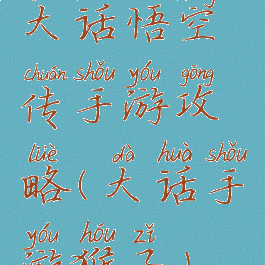 大话悟空
chuán shǒu yóu gōng
传手游攻
lüè dà huà shǒu
略(大话手
yóu hóu zǐ
游猴子)